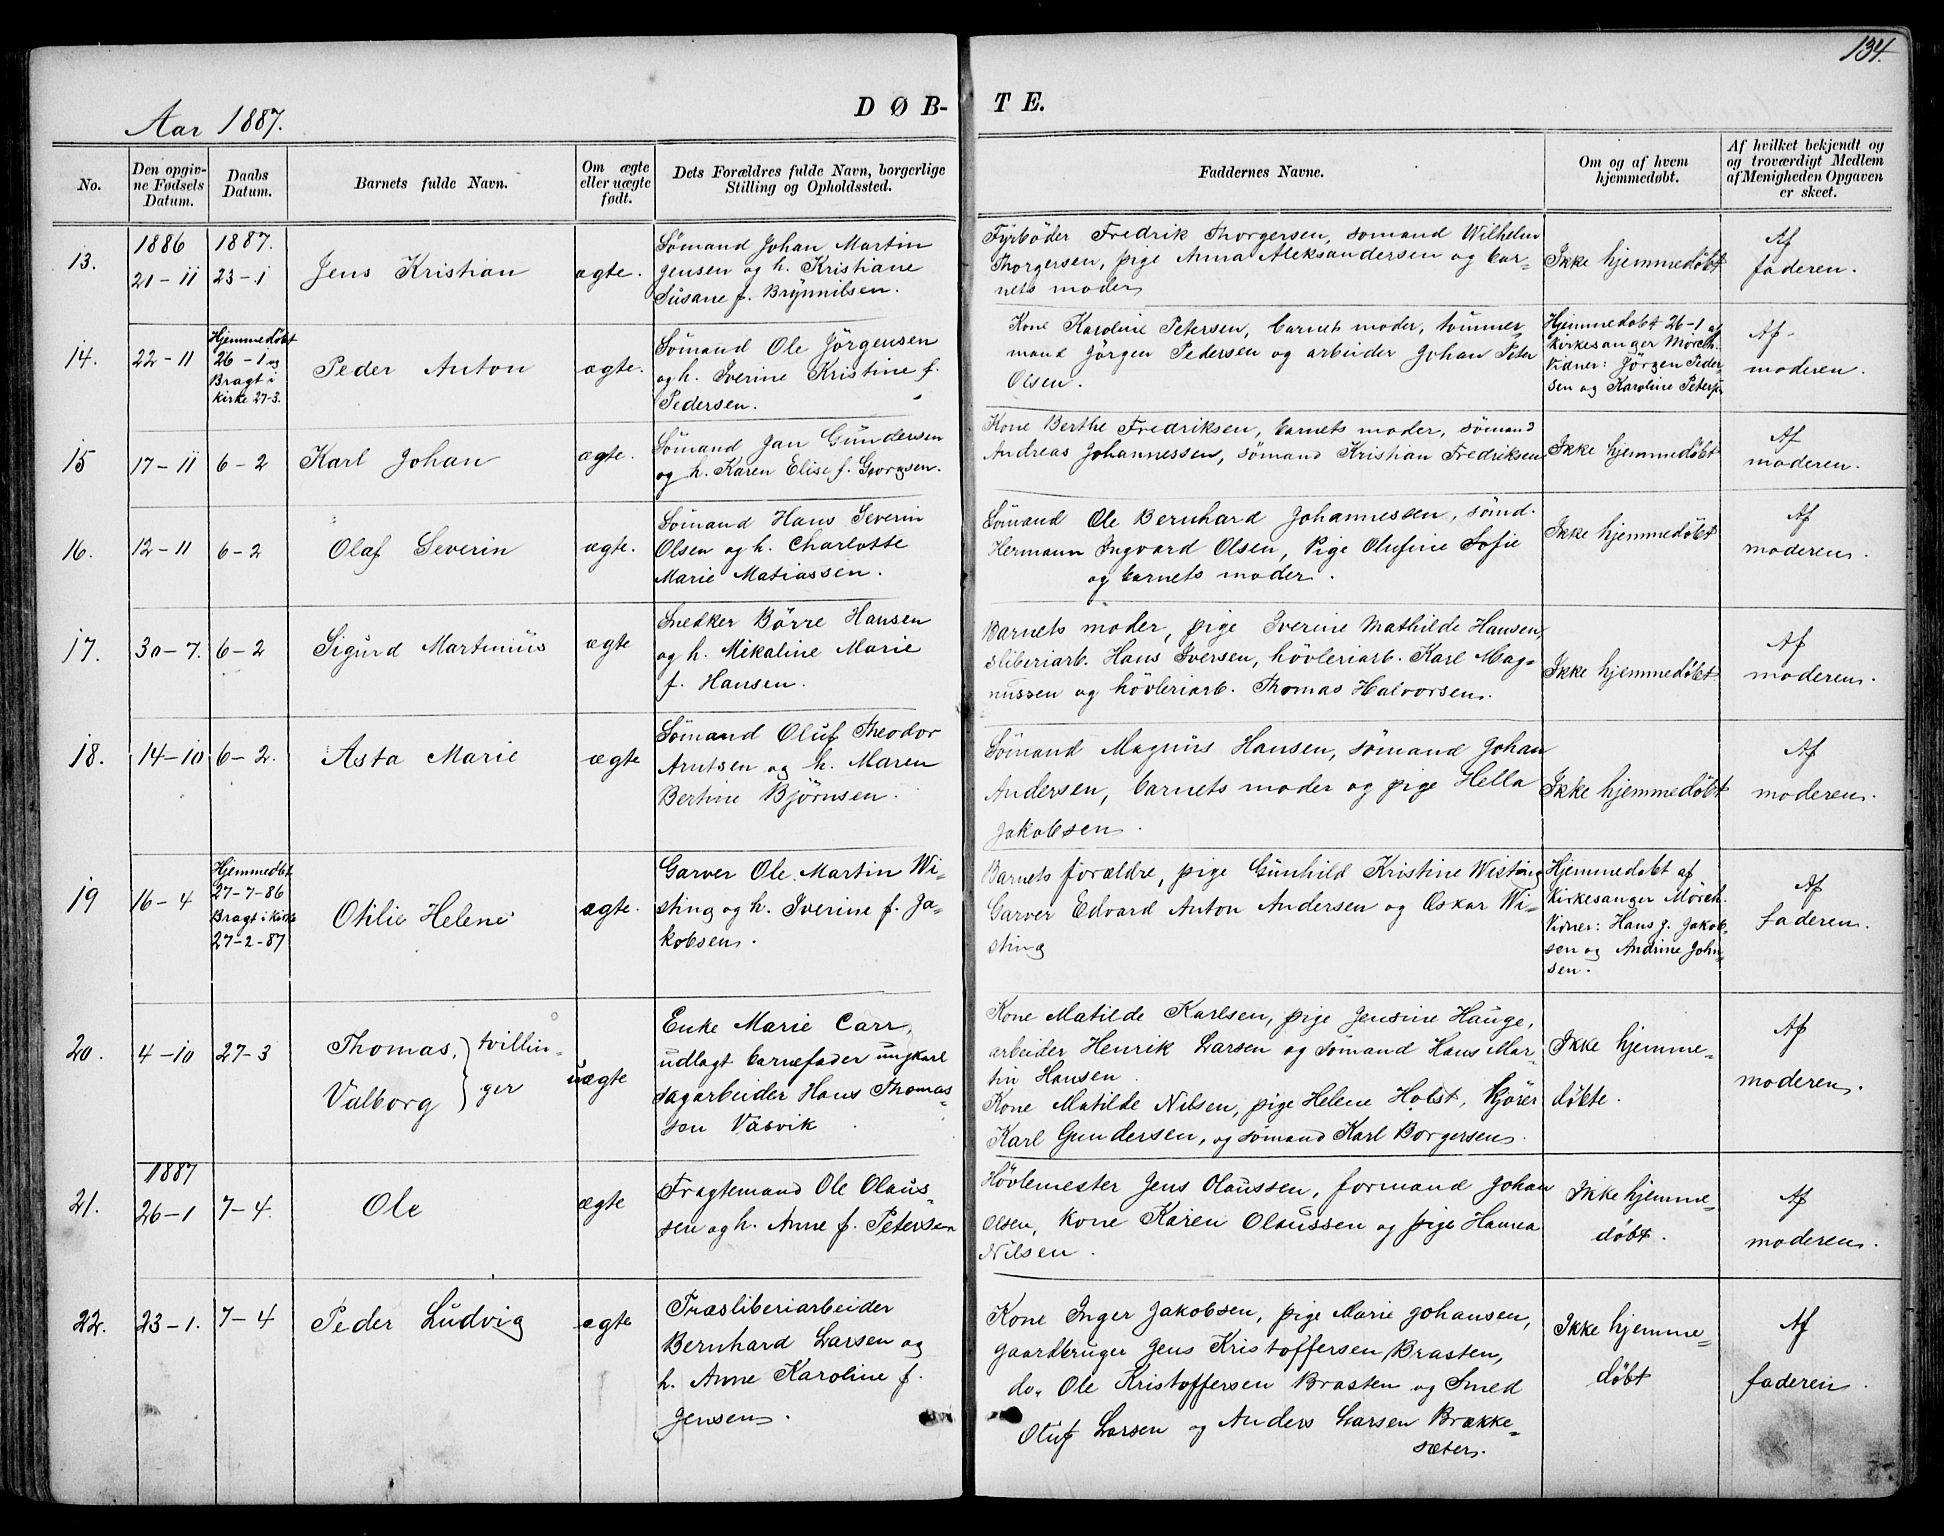 134.
DØB-
TE.
Aar 1887.
No.
Den opgiv-
ne Fødsels
Datum.
Daabs
Datum.
Barnets fulde Navn.
Om ægte
eller uægte
født.
Dets Forældres fulde Navn, borgerlige
Stilling og Opholdssted.
Faddernes Navne.
Om og af hvem
hjemmedøbt.
Af hvilket bekjendt og
og troværdigt Medlem
af Menigheden Opgaven
er skeet.
13.
1886
21-11
1887.
23-1
Jens Kristian
ægte.
Sømand Johan Martin
Jensen og h. Kristiane
Susane f. Brynnilsen.
Fyrbøder Fredrik Thorgersen, sømand Wilhelm
Thorgersen, pige Anna Aleksandersen og bar-
nets moder
Ikke hjemmedøbt
Af
faderen.
14.
22-11
Hjemmedøbt
26-1 og
Bragt i
kirke 27-3.
Peder Anton
ægte.
Sømand Ole Jørgensen
og h. Iverine Kristine f.
Pedersen.
Kone Karoline Petersen, barnets moder, tømmer
mand Jørgen Pedersen og arbeider Johan Peter
Olsen.
Hjemmedøbt 26-1 af
Kirkesanger Mørch.
Vidner: Jørgen Peder-
sen og Karoline Petersen
Af
moderen.
15
17-11
6-2
Karl Johan
ægte.
Sømand Jan Gundersen
og h. Karen Elise f. Georgsen.
Kone Berthe Fredriksen, barnets moder, sømand
Andreas Johannessen, sømand Kristian Fredriksen
Ikke hjemmedøbt
Af
moderen.
16.
12-11
6-2
Olaf Severin
ægte.
Sømand Hans Severin
Olsen og h. Charlotte
Marie Matiassen.
Sømand Ole Bernhard Johannessen, sømd.
Hermann Ingvard Olsen, Pige Olufine Sofie
og barnets moder.
Ikke hjemmedøbt
Af
moderen.
17.
30-7.
6-2
Sigurd Martinius
ægte
Snedker Børre Hansen
og h. Mikaline Marie
f. Hansen.
Barnets moder, pige Iverine Mathilde Hansen,
sliberiarb. Hans Iversen, høvleriarb. Karl Mag-
nussen og høvleriarb. Thomas Halvorsen.
Ikke hjemmedøbt
Af
moderen.
18.
14-10
6-2.
Asta Marie
ægte
Sømand Oluf Theodor
Arntsen og h. Maren
Bertine Bjørnsen.
Sømand Magnus Hansen, sømand Johan
Andersen, barnets moder og pige Hella
Jakobsen.
Ikke hjemmedøbt
Af
moderen.
19
16-4
Hjemmedøbt
27-7-86
Bragt i kirke
27-2-87
Otilie Helene
ægte.
Garver Ole Martin Wi-
sting og h. Iverine f. Ja-
kobsen.
Barnets forældre, pige Gunhild Kristine Wisting
Garver Edvard Anton Andersen og Oskar Wi-
sting
Hjemmedøbt af
Kirkesanger Mørch.
Vidner: Hans J. Jakob-
sen og Andrine John-
sen.
Af
faderen.
20.
4-10
27-3
Thomas,
Valborg
tvillin-
ger
uægte
Enke Marie Carr,
udlagt barnefader ungkarl
sagarbeider Hans Thomas-
sen Vasvik.
Kone Matilde Karlsen, pige Jensine Hauge,
arbeider Henrik Larsen og sømand Hans Mar-
tin Hansen.
Kone Matilde Nilsen, pige Helene Holst, Kjører
Karl Gundersen, og sømand Karl Borgersen.
Ikke hjemme-
døbte.
Af
moderen.
21.
1887
26-1
7-4.
Ole
ægte
Fragtemand Ole Olaus-
sen og h. Anne f. Petersen
Høvlemester Jens Olaussen, formand Johan
Olsen, kone Karen Olaussen og pige Hanna
Nilsen.
Ikke hjemme-
døbt.
Af
moderen.
22.
23-1.
7-4
Peder Ludvig
ægte
Træsliberiarbeider
Bernhard Larsen og
h. Anne Karoline f.
Jensen.
Kone Inger Jakobsen, pige Marie Johansen,
gaardbruger Jens Kristoffersen Brasten,
do. Ole Kristoffersen Brasten og Smed
Oluf Larsen og Anders Larsen Brække-
sæter.
Ikke hjemme-
døbt
Af
faderen.